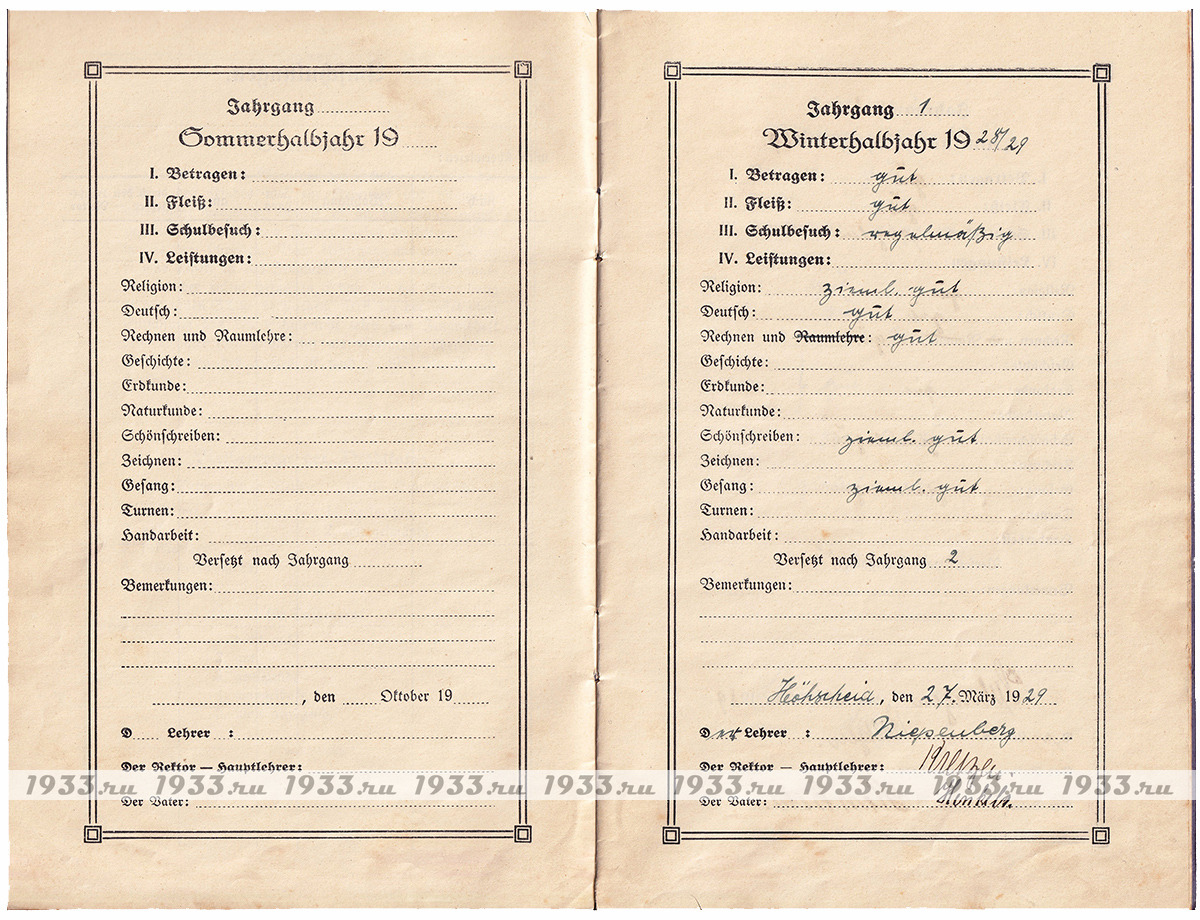 Jahrgang
Sommerhalbjahr 19
I. Betragen:
II. Fleiß:
III. Schulbesuch:
IV. Leistungen:
Religion:
Deutsch:
Rechnen und Raumlehre:
Geschichte:
Erdkunde:
Naturkunde:
Schönschreiben:
Zeichnen:
Gesang:
Turnen:
Handarbeit:
Versetzt nach Jahrgang
Bemerkungen:
, den Oktober 19
D Lehrer :
Der Rektor — Hauptlehrer:
Der Vater:
Jahrgang 1
Winterhalbjahr 1928/29
I. Betragen: gut
II. Fleiß: gut
III. Schulbesuch: regelmäßig
IV. Leistungen:
Religion: zieml. gut
Deutsch: gut
Rechnen und Raumlehre: gut
Geschichte:
Erdkunde:
Naturkunde:
Schönschreiben: zieml. gut
Zeichnen:
Gesang: zieml. gut
Turnen:
Handarbeit:
Versetzt nach Jahrgang 2
Bemerkungen:
Höhscheid, den 27. März 1929
Der Lehrer : Niepenberg
Der Rektor — Hauptlehrer:
1933.ru 1933.ru 1933.ru 1933.ru 1933.ru 1933.ru 1933.ru 1933.ru 1933.ru
Der Vater: